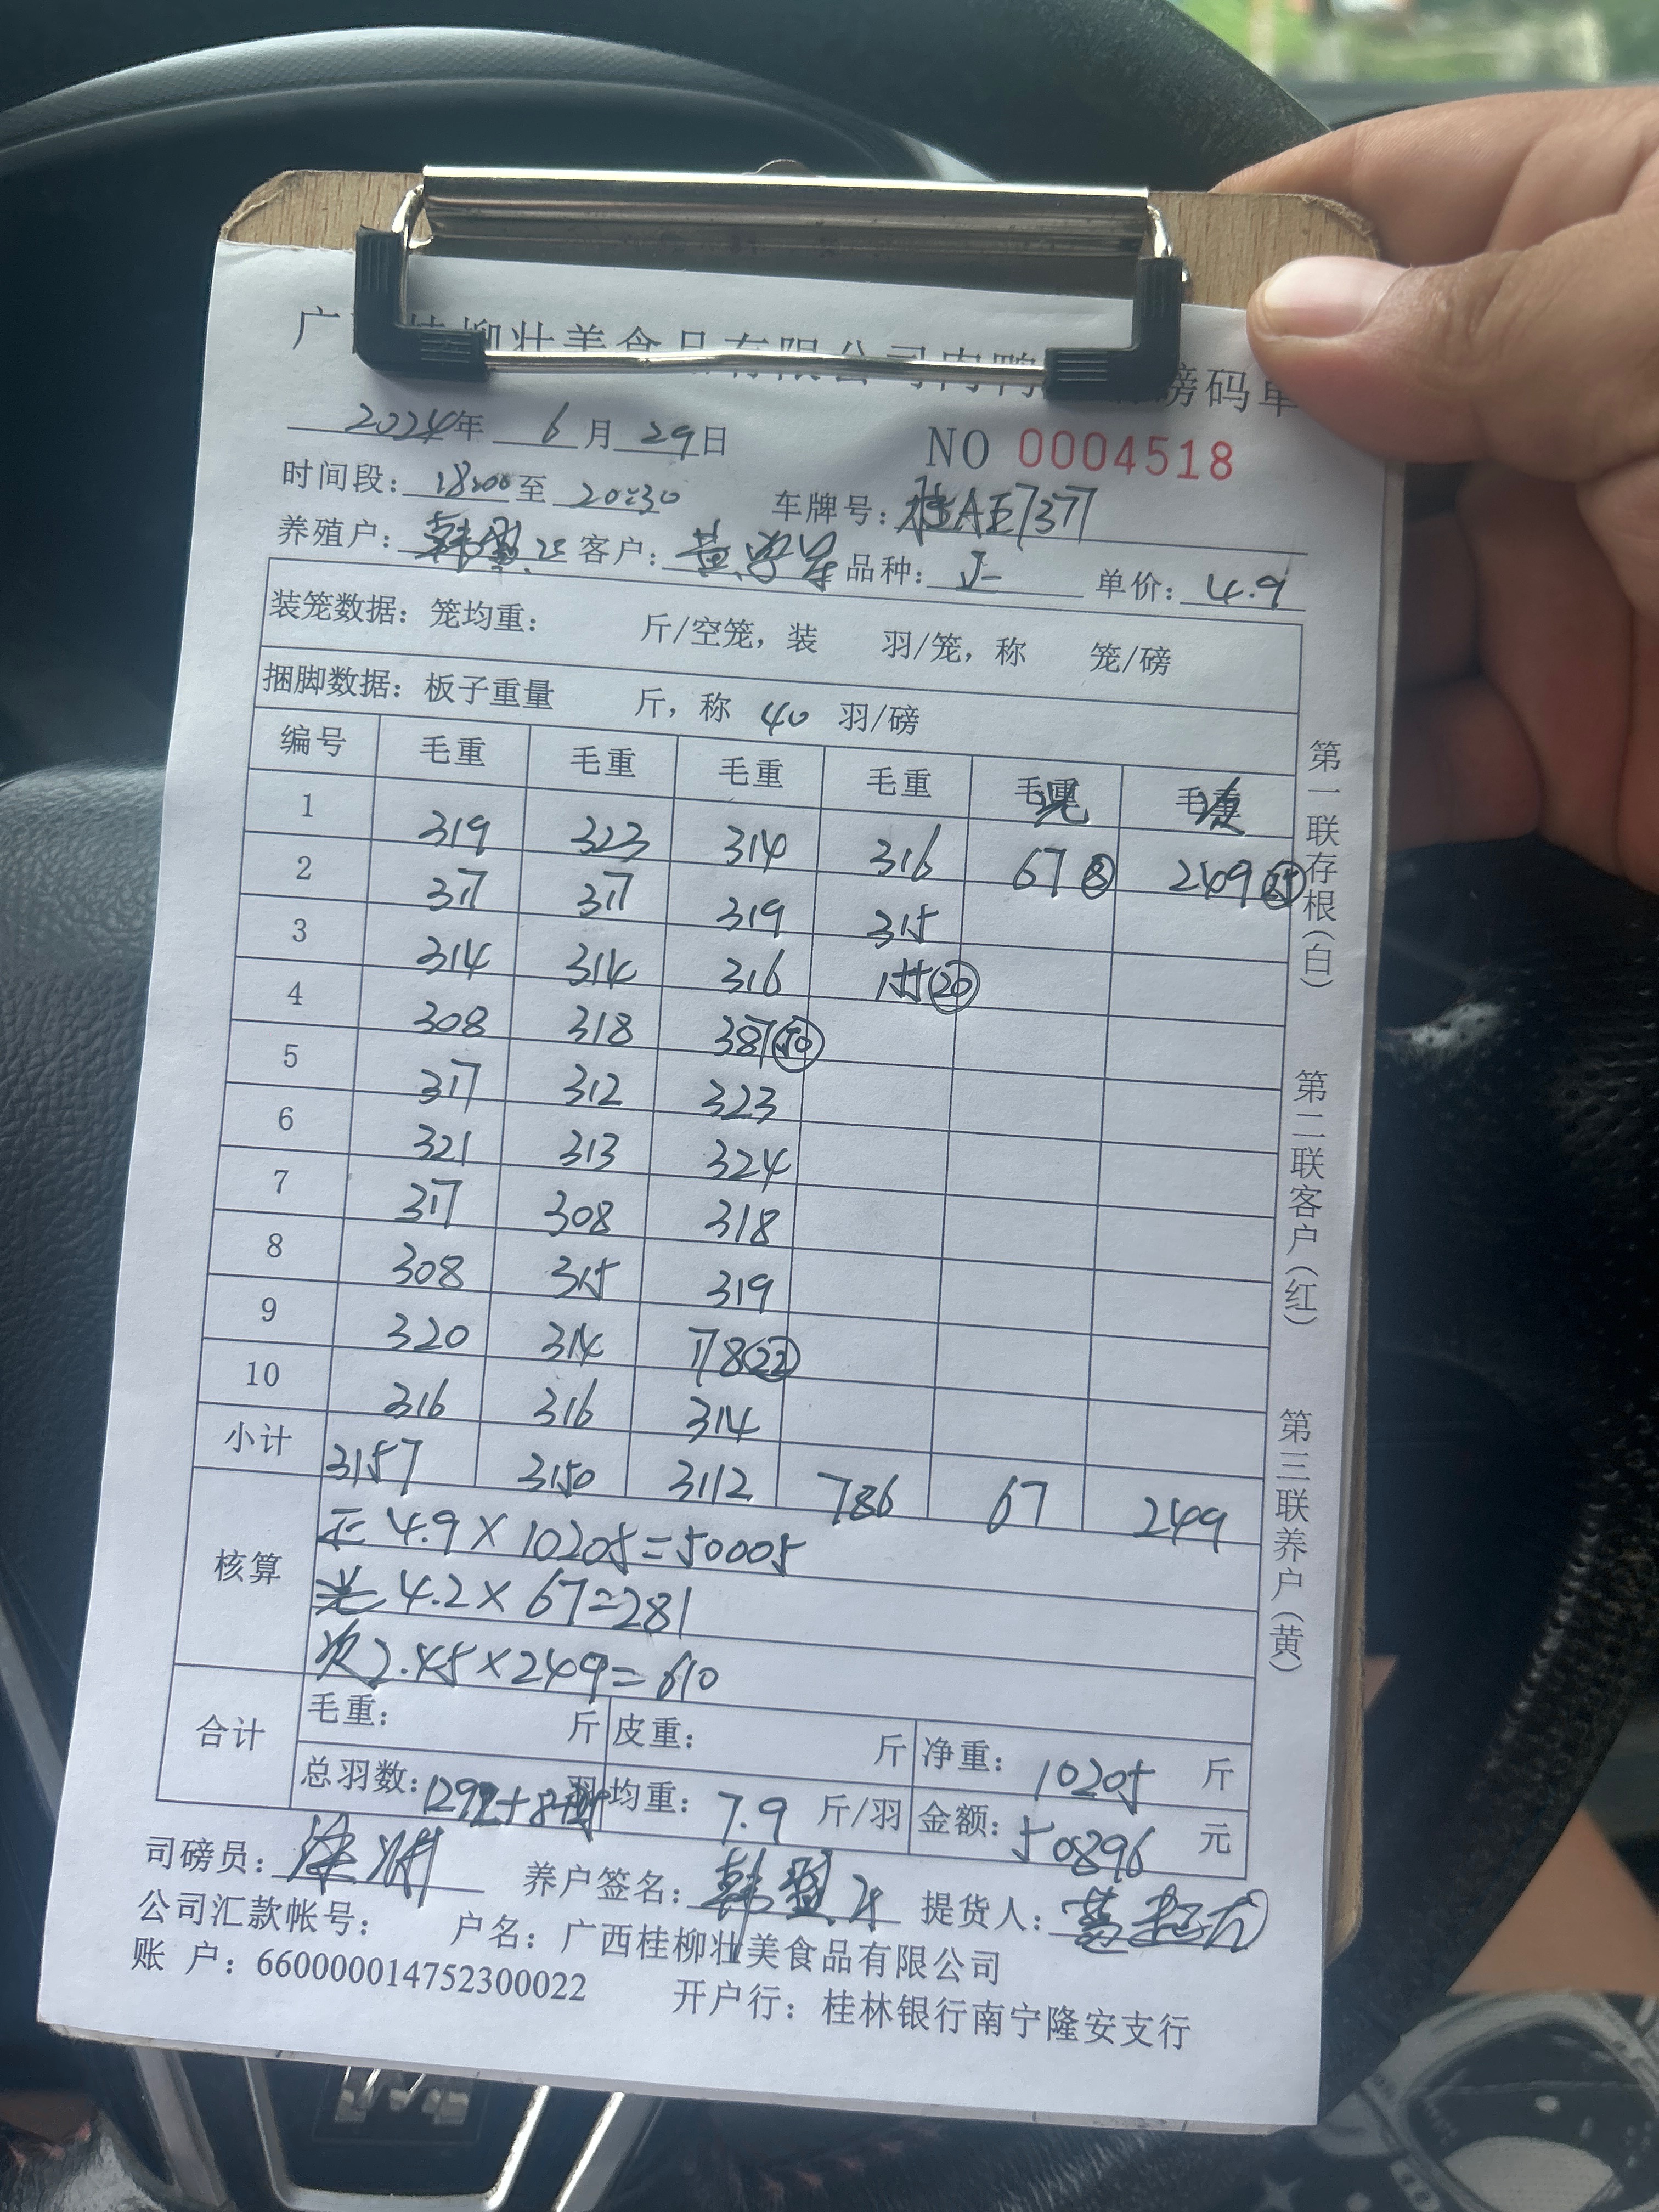 广 桂柳壮美食品有限公司肉鸭 磅码单
2024年 6月29日 NO 0004518
时间段: 18:00至 20:30 车牌号: 桂AE7377
养殖户: 韩 客户: 黄 品种: 正 单价: 4.9
装笼数据: 笼均重: 斤/空笼, 装 羽/笼, 称 笼/磅
捆脚数据: 板子重量 斤, 称 40 羽/磅
编号 毛重 毛重 毛重 毛重 毛重 光 毛重 次
1 319 323 314 316 67 ⑧ 249
2 317 317 319 315
3 314 314 316 155 ⑳
4 308 318 387 ㊿
5 317 312 323
6 321 313 324
7 317 308 318
8 308 315 319
9 320 314 178 ㉒
10 316 316 314
小计 3157 3150 3112 786 67 249
核算
正 4.9×10205=50005
光 4.2×67=281
次 2.45×249=610
合计
毛重: 斤 皮重: 斤 净重: 10205 斤
总羽数: 1292+8+ 羽 均重: 7.9 斤/羽 金额: 50896 元
司磅员: 养户签名: 韩 提货人:
公司汇款帐号: 户名: 广西桂柳壮美食品有限公司
账 户: 660000014752300022 开户行: 桂林银行南宁隆安支行
第一联存根(白)
第二联客户(红)
第三联养户(黄)